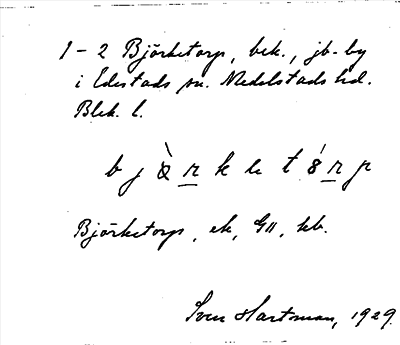 1-2 Björketorp, bek., jb-by
i Edestads sn. Medelstads hd.
Blek. l.
Björketorp, ek, GII, kb.
Sven Hartsman, 1929.